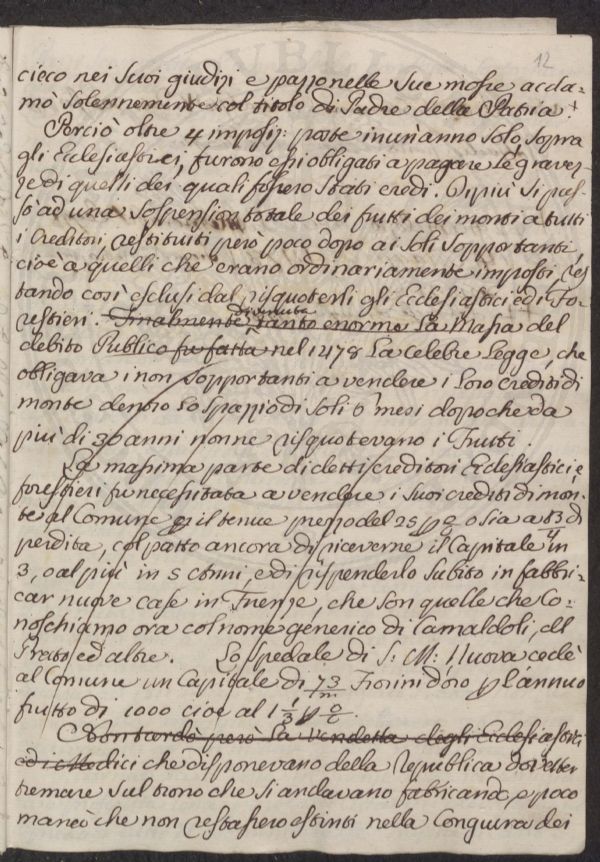 12
cieco nei suoi giudizi e pazzo nelle sue mosse accla=
mò solennemente col titolo di Padre della Patria.
Perciò oltre 4 imposiz: poste in un'anno solo, sopra
gli Ecclesiastici, furono essi obligati a pagare le gravez=
ze di quelli dei quali fossero stati eredi. Di più si pas=
sò ad una sospensione totale dei frutti dei monti a tutti
i Creditori, restituiti però poco dopo ai soli sopportanti,
cioè a quelli ch'erano ordinariamente imposti, res
tando così esclusi dal risquoterli gli Ecclesiastici ed i Fo=
restieri. Finalmente divenuta tanto enorme la Massa del
debito Publico fu fatta nel 1478 la celebre Legge, che
obligava i non sopportanti a vendere i loro crediti di
monte dentro lo spazio di soli 6 mesi dopo che da
più di 30 anni non ne risquotevano i Frutti.
La massima parte di detti creditori Ecclesiastici e
forestieri fu necessitata a vendere i suoi crediti di mon=
te al Comune il tenue prezzo del 25 p o/o o sia a di
perdita, col patto ancora di riceverne il Capitale in
3, o al più in 5 anni, e di rispenderlo subito in fabbri=
car nuove case in Firenze, che son quelle che Co=
noschiamo ora col nome generico di Camaldoli, del
Prato ed altre. Lo Spedale di S: M: Nuova cedè
al Comune un Capitale di 73/m Fiorini d'oro p l'annuo
frutto di 1000 cioè al 1 1/3 p o/o.
però la vendetta degli Ecclesiastici
ed i Medici che disponevano della Republica dovetter
tremare sul trono che si andavano fabbricando, e poco
mancò che non restassero estinti nella Congiura dei